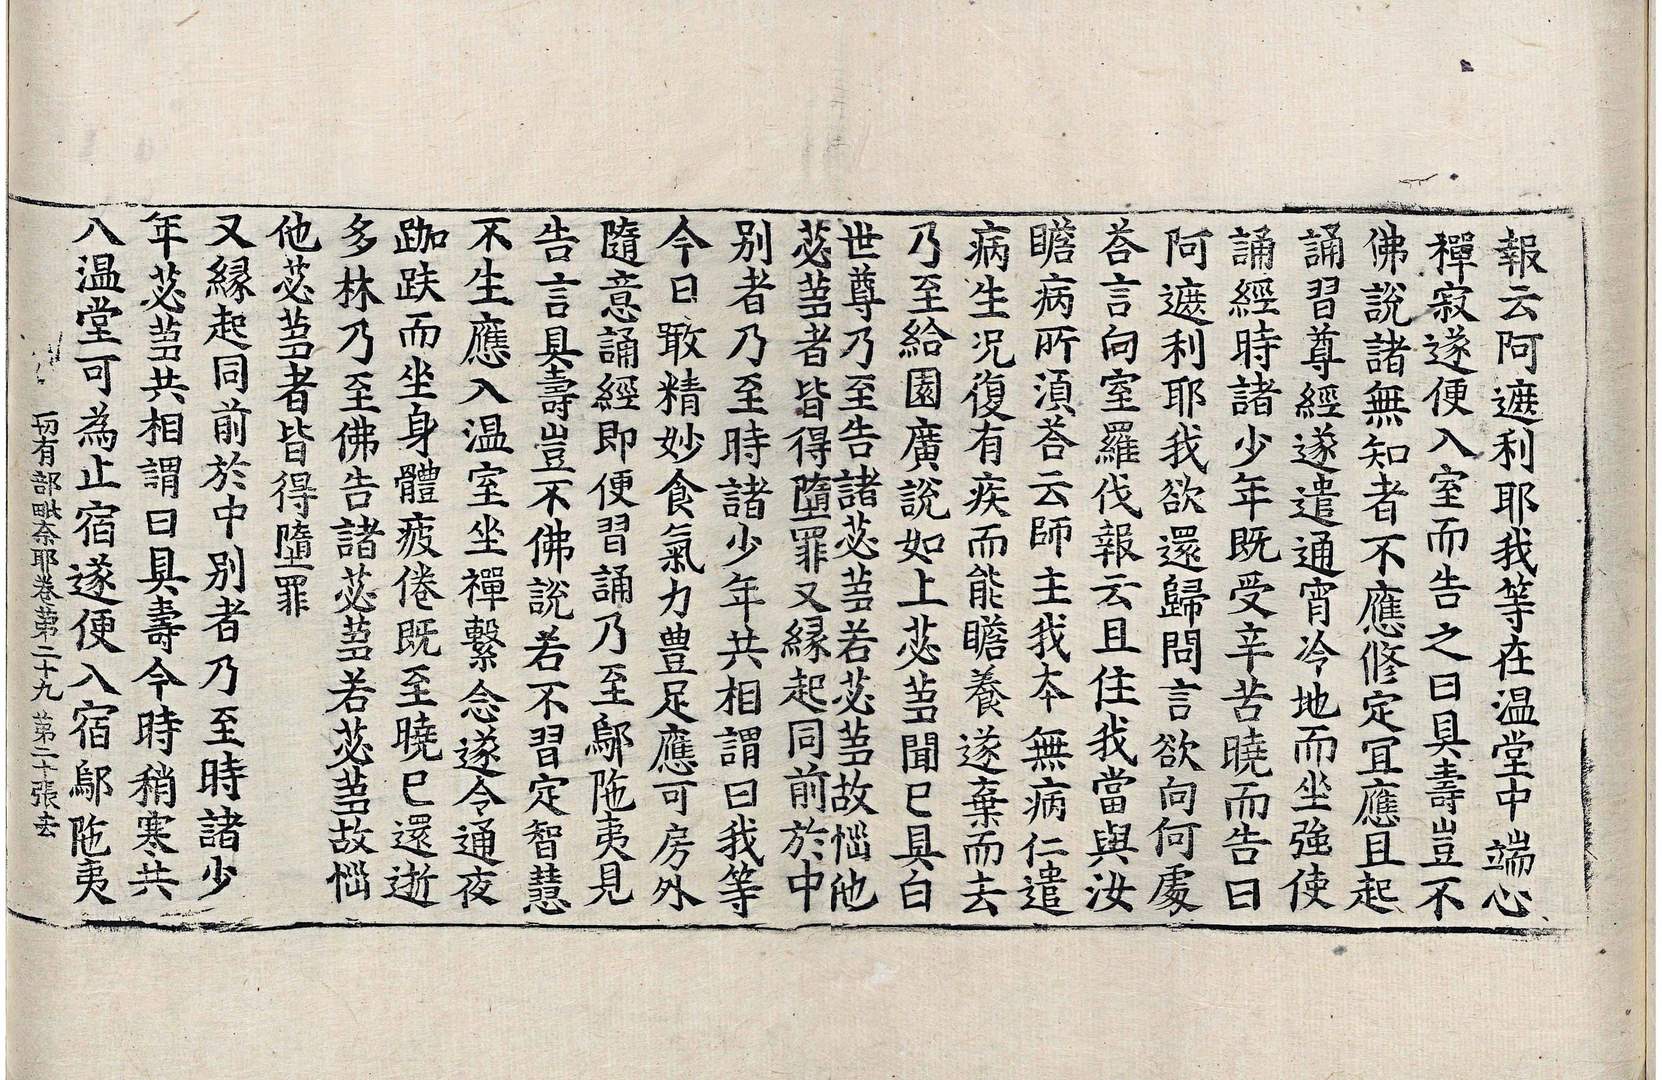 報云阿遮利耶我等在温堂中端心
禪寂遂便入室而告之曰具壽豈不
佛說諸無知者不應修定冝應且起
誦習尊經遂遣通宵冷地而坐強使
誦經時諸少年既受辛苦曉而告曰
阿遮利耶我欲還歸問言欲向何處
荅言向室羅伐報云且住我當與汝
瞻病所湏荅云師主我本無病仁遣
病生况復有疾而能瞻養遂棄而去
乃至給園廣說如上苾芻聞已具白
世尊乃至告諸苾芻若苾芻故惱他
苾芻者皆得墮罪又緣起同前於中
別者乃至時諸少年共相謂曰我等
今日噉精妙食氣力豊足應可房外
隨意誦經即便習誦乃至鄔陁夷見
告言具壽豈不佛說若不習定智慧
不生應入温室坐禪繫念遂令通夜
跏趺而坐身體疲倦既至曉已還逝
多林乃至佛告諸苾芻若苾芻故惱
他苾芻者皆得墮罪
又緣起同前於中別者乃至時諸少
年苾芻共相謂曰具壽今時稍寒共
入温堂可為止宿遂便入宿鄔陁夷
切有部毗奈耶卷苐二十九 苐二十張 去